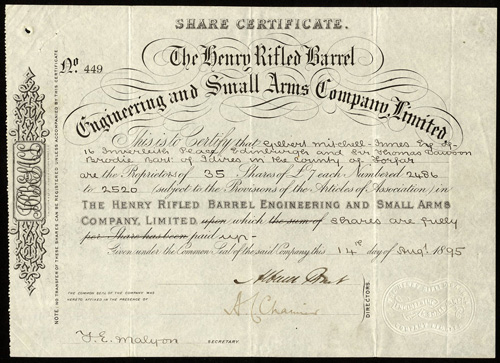 SHARE CERTIFICATE.
No. 449
The Henry Rifled Barrel
Engineering and Small Arms Company, Limited
This is to Certify that Gilbert Mitchell-Innes Esq of
16 Inverleith Place Edinburgh and Sir Thomas Dawson
Brodie Bart. of Idvies in the County of Forfar
are the Proprietors of 35 Shares of £7 each Numbered 2486
to 2520 (subject to the Provisions of the Articles of Association) in
THE HENRY RIFLED BARREL ENGINEERING AND SMALL ARMS
COMPANY, LIMITED upon which the sum of shares are fully
per Share has been paid up-
Given under the Common Seal of the said Company this 14th day of Augt 1895
THE COMMON SEAL OF THE COMPANY WAS
HERETO AFFIXED IN THE PRESENCE OF
DIRECTORS
F. E. Malyon
NOTE, NO TRANSFER OF THESE SHARES CAN BE REGISTERED UNLESS ACCOMPANIED BY THIS CERTIFICATE